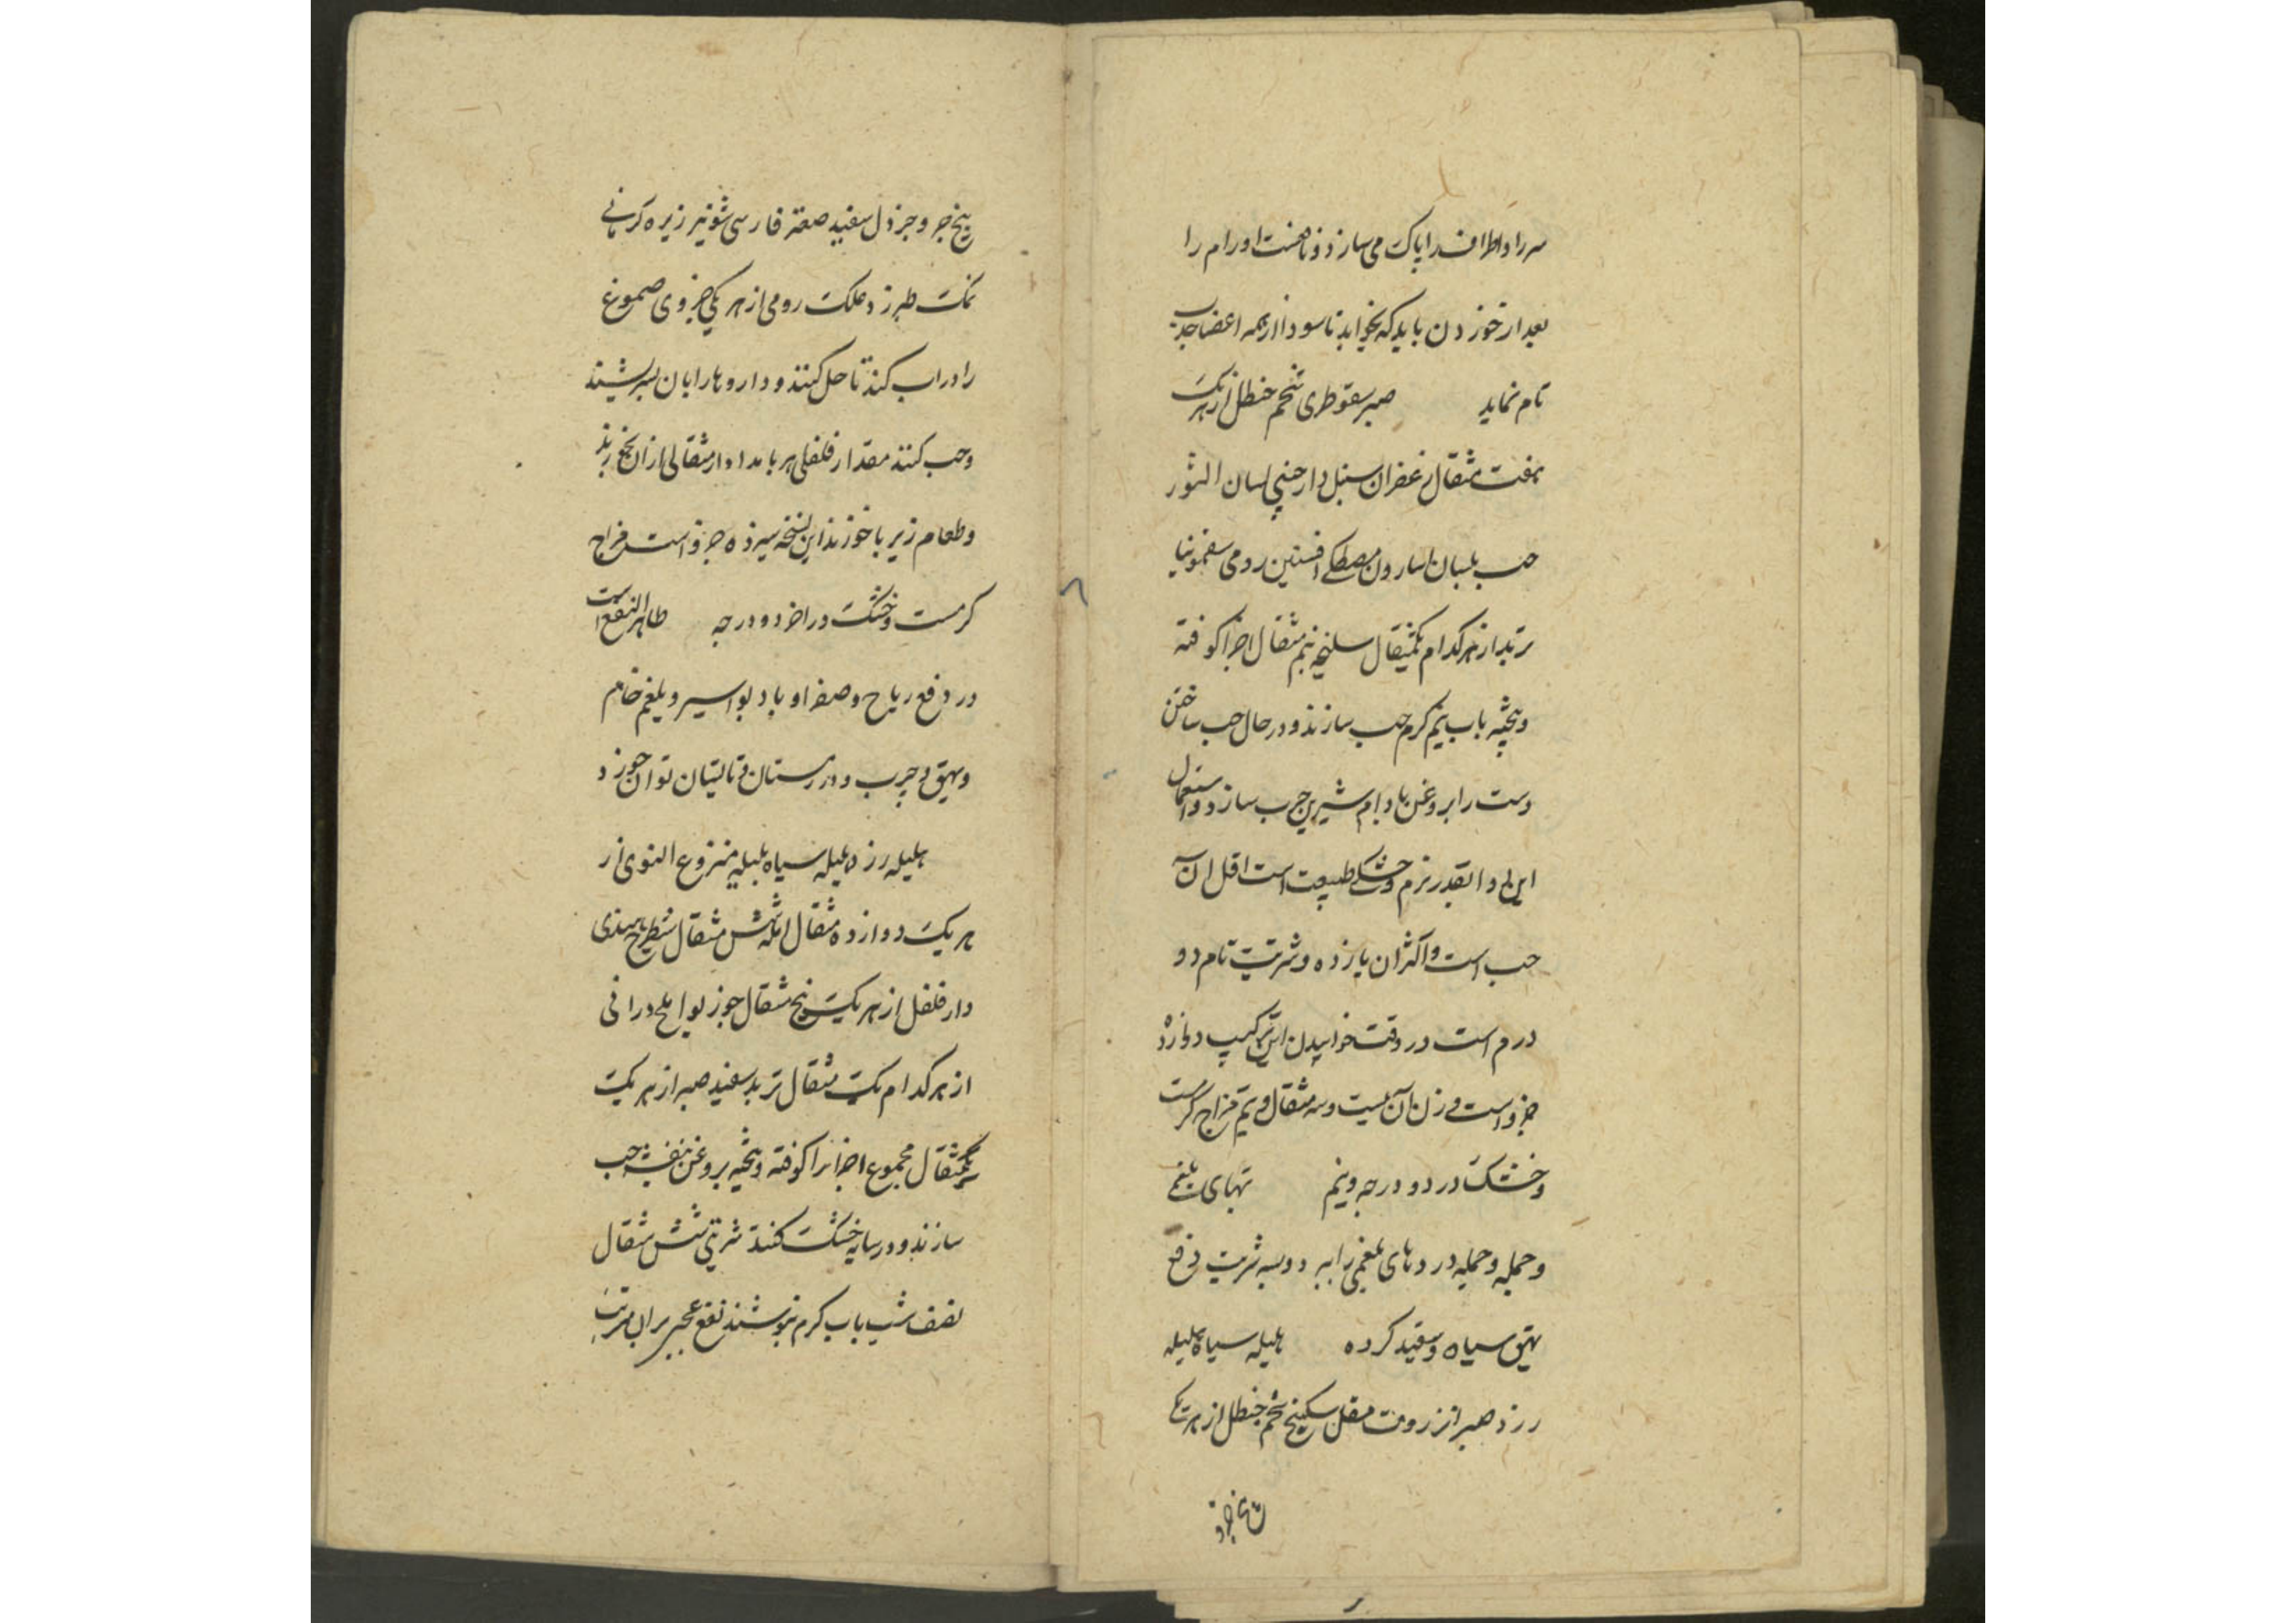 سر را و اطراف را پاک می سازد و نافعست اورام را
بعد از خوردن باید که بخوابد تا سودا از همه اعضا جذب
تام نماید صبر سقوطری شحم حنظل از هر یک
هفت مثقال زعفران سنبل دارچینی لسان الثور
حب بلسان اسارون مصطکی افسنتین رومی سقمونیا
تربد از هر کدام یکمثقال سلیخه نیم مثقال اجزا کوفته
و بیخته باب نیم کرم حب سازند و در حال حب ساختن
دست را بروغن بادام شیرین چرب سازد و استعمال
این دوا بقدر نرم و خشکی طبیعت است اقل آن
حب است و اکثر آن یازده و شربت تام دو
درم است در وقت خوابیدن این ترکیب دوازده
جزو است وزن آن بیست و سه مثقال و نیم مزاج گرمست
و خشک در دو درجه و نیم تبهای بلغمی
و جمله دردهای بلغمی را به دو سه شربت دفع
بهق سیاه و سفید کرده هلیله سیاه هلیله
زرد صبر انزروت مقل سکبینج شحم حنظل از هر یک
بیخ
بیخ و خردل سفید صعتر فارسی شونیز زیره کرمانی
نمک طبرزد علک رومی از هر یکی جزوی صموغ
را در اب کند تا حل کنند و داروها را بان بسرشند
و حب کنند مقدار فلفلی هر بامداد مثقالی از ان بخورند
و طعام زیربا خورند این نسخه سیزده جزو است مزاج
کرمست و خشک در اخر دو درجه ظاهر النفع است
در دفع ریاح و صفرا و باد بواسیر و بلغم خام
و بهق و جرب و در زمستان و تابستان توان خورد
هلیله زرد هلیله سیاه بلیله منزوع النوی از
هر یک دوازده مثقال امله شش مثقال شیطرج هندی
دارفلفل از هر یک پنج مثقال جوز بوا ملح درانی
از هر کدام یک مثقال تربد سفید صبر از هر یک
یکمثقال مجموع اجزا را کوفته و بیخته بروغن بنفشه حب
سازند و در سایه خشک کنند شربتی شش مثقال
نصف شب باب کرم بنوشند نفع عجیب بران مرتب